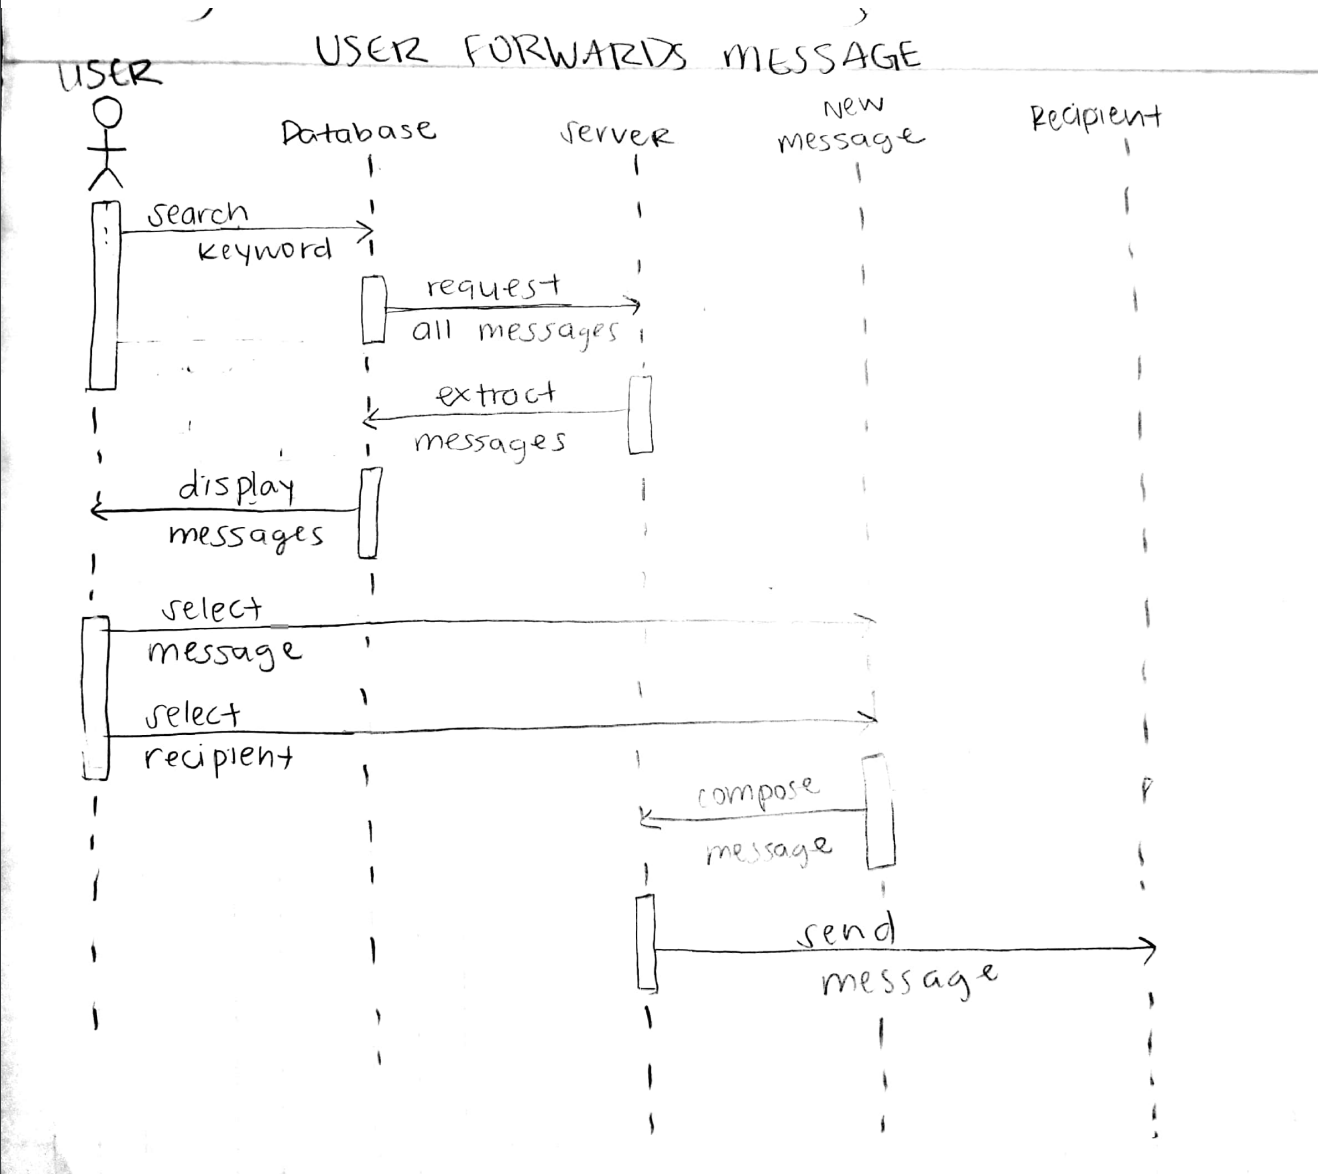 USER FORWARDS MESSAGE
USER
Database
server
New
message
Recipient
search
keyword
request
all messages
extract
messages
display
messages
select
message
select
recipient
compose
message
send
message